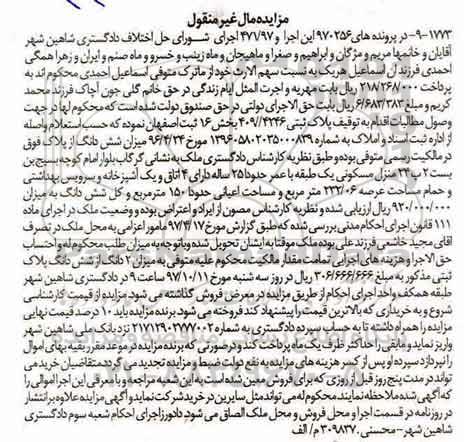 مزایده مال غیرمنقول
۹-۱۷۷۳- در پرونده های ۹۷۰۲۵۶ این اجرا و ۴۷۱/۹۷ اجرای شورای حل اختلاف دادگستری شاهین شهر
آقایان و خانمها مریم و مژگان و ابراهیم و صفرا و ماهیجان و ماه زینب و خسرو و ماه صنم و ایران و زهرا همگی
احمدی فرزندان اسماعیل هریک به نسبت سهم الارث خود از ماترک متوفی اسماعیل احمدی محکوم اند به
پرداخت ۲۱۸/۲۶۸/۰۰۰ ریال بابت مهریه و اجرت المثل ایام زندگی در حق خانم گلی جون آچاک فرزند محمد
کریم و مبلغ ۶/۶۸۳/۳۸۳ ریال بابت حق الاجرای دولتی در حق صندوق دولت شده است که محکوم لها در جهت
وصول مطالبات اقدام به توقیف پلاک ثبتی ۴۰۹/۴۳۴۶ بخش ۱۶ ثبت اصفهان نموده که حسب استعلام واصله
از اداره ثبت اسناد و املاک به شماره ۱۳۹۶۰۵۸۰۲۰۳۵۰۰۰۸۳۹ مورخ ۹۶/۴/۲۳ میزان شش دانگ از پلاک فوق
در مالکیت رسمی متوفی بوده و طبق نظریه کارشناس دادگستری ملک به نشانی گرگاب بلوار امام کوچه بسیج بن
بست ۲ پ ۲۳ منزل مسکونی یک طبقه با عمر حدودا ۲۵ ساله دارای ۴ اتاق و یک آشپزخانه و سرویس بهداشتی
و حمام مساحت عرصه ۲۳۲/۰۶ متر مربع و مساحت اعیانی حدودا ۱۵۰ مترمربع و کل شش دانگ به میزان
۹۲۰/۰۰۰/۰۰۰ ریال ارزیابی شده و نظریه کارشناس مصون از ایراد و اعتراض بوده و وضعیت ملک در اجرای ماده
۱۱۱ قانون اجرای احکام مدنی بررسی شده که طبق گزارش مورخ ۹۷/۴/۱۷ مامور اعزامی به محل ملک در تصرف
آقای مجید خاشعی فرزند علی بوده ملک موقتا به ایشان تحویل شده و باتوجه به میزان طلب محکوم له و احتساب
حق الاجرا و هزینه های اجرایی تمامت مقدار مالکیت محکوم علیه متوفی به میزان ۲ دانگ از شش دانگ پلاک
ثبتی مذکور به مبلغ ۳۰۶/۶۶۶/۶۶۶ ریال در روز سه شنبه مورخ ۹۷/۱۰/۱۱ ساعت ۹ در دادگستری شاهین شهر
طبقه همکف واحد اجرای احکام از طریق مزایده در معرض فروش گذاشته می شود. مزایده از قیمت کارشناسی
شروع و به خریداری که بالاترین قیمت را پیشنهاد کند فروخته می شود. برنده مزایده باید ۱۰ درصد قیمت نهایی
مزایده را همراه داشته تا به حساب سپرده دادگستری به شماره ۲۱۷۱۲۹۰۳۷۷۷۰۰۲ نزد بانک ملی شاهین شهر
واریز نماید و مابقی را حداکثر ظرف یک ماه پرداخت کند و درصورتی که برنده مزایده در موعد مقرر بقیه بهای اموال
را نپردازد سپرده او پس از کسر هزینه های مزایده به نفع دولت ضبط و مزایده تجدید می گردد. متقاضیان خرید می
توانند در مدت پنج روز قبل از روزی که برای فروش معین شده است به این شعبه مراجعه و با معرفی این اجرا موالی را
که آگهی شده ملاحظه نمایند محکوم له می تواند مثل سایرین در خرید شرکت نماید و آگهی مزایده علاوه بر انتشار
در روزنامه در قسمت اجرا و محل فروش و محل ملک الصاق می شود. دادورز اجرای احکام شعبه سوم دادگستری
شاهین شهر- محسنی. ۳۰۹۸۳۷/ م الف